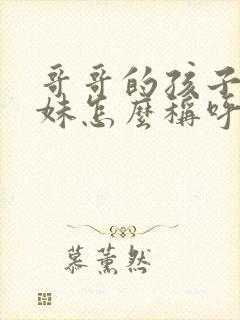 哥哥的孩子
妹怎麼稱呼
慕薰然